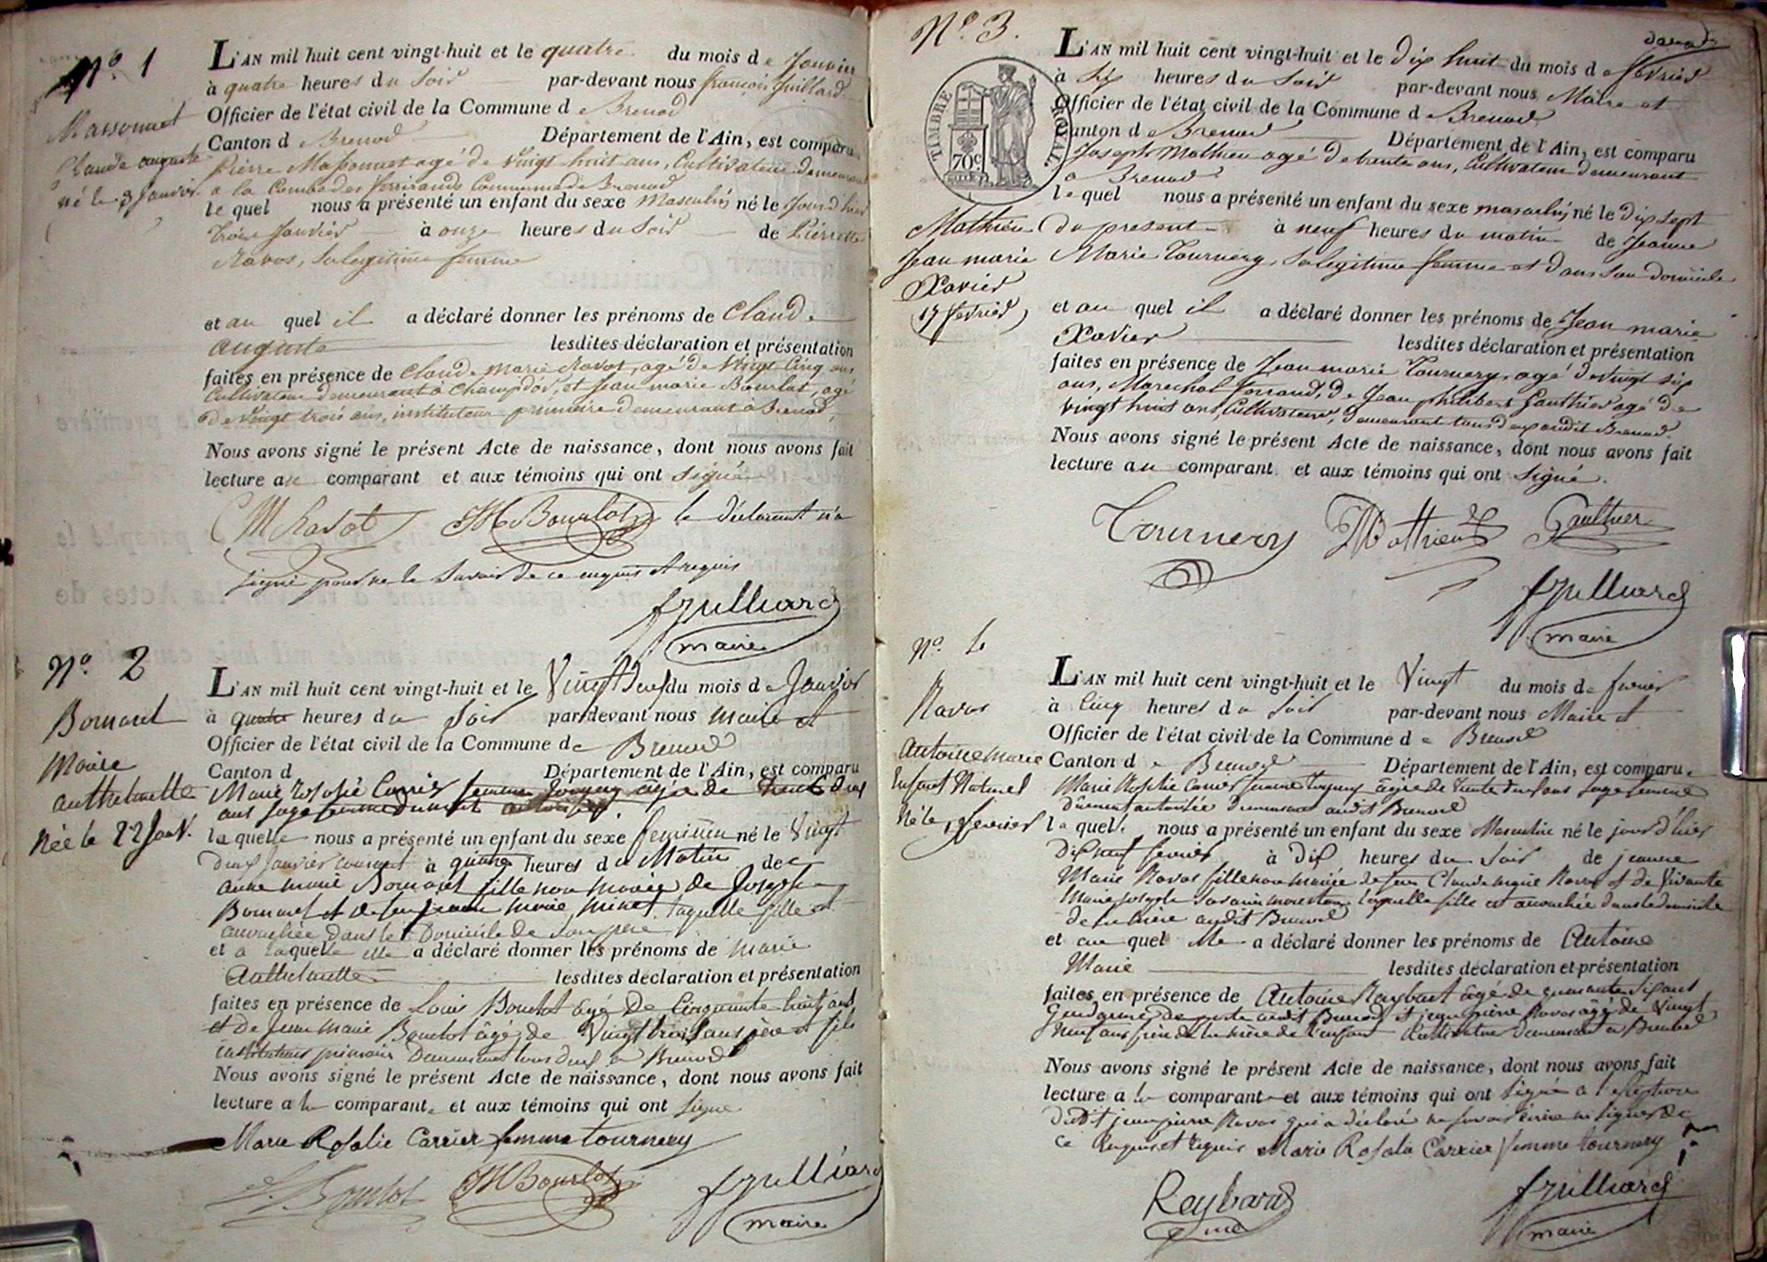 N.º 1
Massonnet
Claude auguste
né le 3 Janvier
L'AN mil huit cent vingt-huit et le quatre du mois de Janvier
à quatre heures du Soir par-devant nous françois Juillard
Officier de l'état civil de la Commune de Brenod
Canton de Brenod Département de l'Ain, est comparu
Pierre Massonnet agé de vingt huit ans, Cultivateur demeurant
a la Combe des Commune de Brenod
lequel nous a présenté un enfant du sexe Masculin né le Jour d'hier
trois Janvier à onze heures du Soir de Pierrette
Ravos, Sa legitime femme
et au quel il a déclaré donner les prénoms de Claude
auguste lesdites déclaration et présentation
faites en présence de Claude Marie Ravot, agé de Vingt Cinq ans
Cultivateur demeurant à Champdor, et Jean marie Bourlot, agé
de Vingt trois ans, instituteur primaire demeurant à Brenod,
Nous avons signé le présent Acte de naissance, dont nous avons fait
lecture au comparant et aux témoins qui ont signé
CM Ravot JM Bourlot le déclarant n'a
signé pour ne le Savoir de ce enquis et requis
fJuilliard
maire
N.º 2
Bornaret
Marie
anthelmette
Née le 22 Janv.
L'AN mil huit cent vingt-huit et le Vingt deux du mois de Janvier
à quatre heures du Soir par-devant nous Maire et
Officier de l'état civil de la Commune de Brenod
Canton d Département de l'Ain, est comparu
Marie rosalie Carrier femme agée de trente deux
ans sage femme dument autorisée
laquelle nous a présenté un enfant du sexe feminin né le Vingt
deux Janvier courant à quatre heures du Matin de
anne marie Bornaret fille non mariée de Joseph
Bornaret et de feu marie minet, laquelle fille est
accouchée dans le Domicile de son père
et a laquelle elle a déclaré donner les prénoms de Marie
Anthelmette lesdites déclaration et présentation
faites en présence de Louis Bourlot agé de Cinquante huit ans
et de Jean Marie Bourlot âgé de Vingt trois ans père et fils
instituteurs primaires Demeurant tous deux à Brenod
Nous avons signé le présent Acte de naissance, dont nous avons fait
lecture a la comparante et aux témoins qui ont Signé
Marie Rosalie Carrier femme tournery
L. Bourlot JM Bourlot fJuilliard
maire
N.º 3.
TIMBRE ROYAL
70c
Mathieu
Jean marie
Xavier
(17 fevrier)
L'AN mil huit cent vingt-huit et le Dix huit du mois de fevrier
à Six heures du Soir par-devant nous Maire et
Officier de l'état civil de la Commune de Brenod
Canton de Brenod Département de l'Ain, est comparu
Joseph Mathieu agé de trente ans, Cultivateur demeurant
a Brenod
lequel nous a présenté un enfant du sexe masculin né le dix sept
du present à neuf heures du matin de Jeanne
Marie Tournery, Sa legitime femme et dans son domicile
et au quel il a déclaré donner les prénoms de Jean marie
Xavier lesdites déclaration et présentation
faites en présence de Jean marie Tournery, agé de vingt six
ans, Marechal ferrand, & de Jean philibert Gauthier agé de
vingt huit ans, Cultivateur, demeurant tous deux audit Brenod.
Nous avons signé le présent Acte de naissance, dont nous avons fait
lecture au comparant et aux témoins qui ont signé.
Tournery JMathieu Gauthier
fJuilliard
maire
N.º 4
Ravos
Antoine Marie
Enfant Naturel
Né le fevrier
L'AN mil huit cent vingt-huit et le Vingt du mois de fevrier
à Cinq heures du Soir par-devant nous Maire et
Officier de l'état civil de la Commune de Brenod
Canton de Brenod Département de l'Ain, est comparue
Marie Rosalie Carrier femme tournery âgée de trente deux ans sage femme
dûment autorisée demeurant audit Brenod
laquelle nous a présenté un enfant du sexe Masculin né le jour d'hier
dix neuf fevrier à Dix heures du Soir de jeanne
Marie Ravos fille non mariée de feu Claude Marie Ravos et de Vivante
Marie Josephe laquelle fille est accouchée dans le domicile
de sa mère audit Brenod
et au quel elle a déclaré donner les prénoms de Antoine
Marie lesdites déclaration et présentation
faites en présence de Antoine Raybard âgé de quarante six ans
Gendarme de poste audit Brenod et jean pierre Ravos âgé de Vingt
neuf ans frère de la mère de l'enfant Cultivateur demeurant à Brenod
Nous avons signé le présent Acte de naissance, dont nous avons fait
lecture a la comparante et aux témoins qui ont Signé a l'exeption
dudit jean pierre Ravos qui a déclaré ne savoir écrire ni signer de
ce Enquis et requis Marie Rosalie Carrier femme tournery
Raybard
fJuilliard
maire